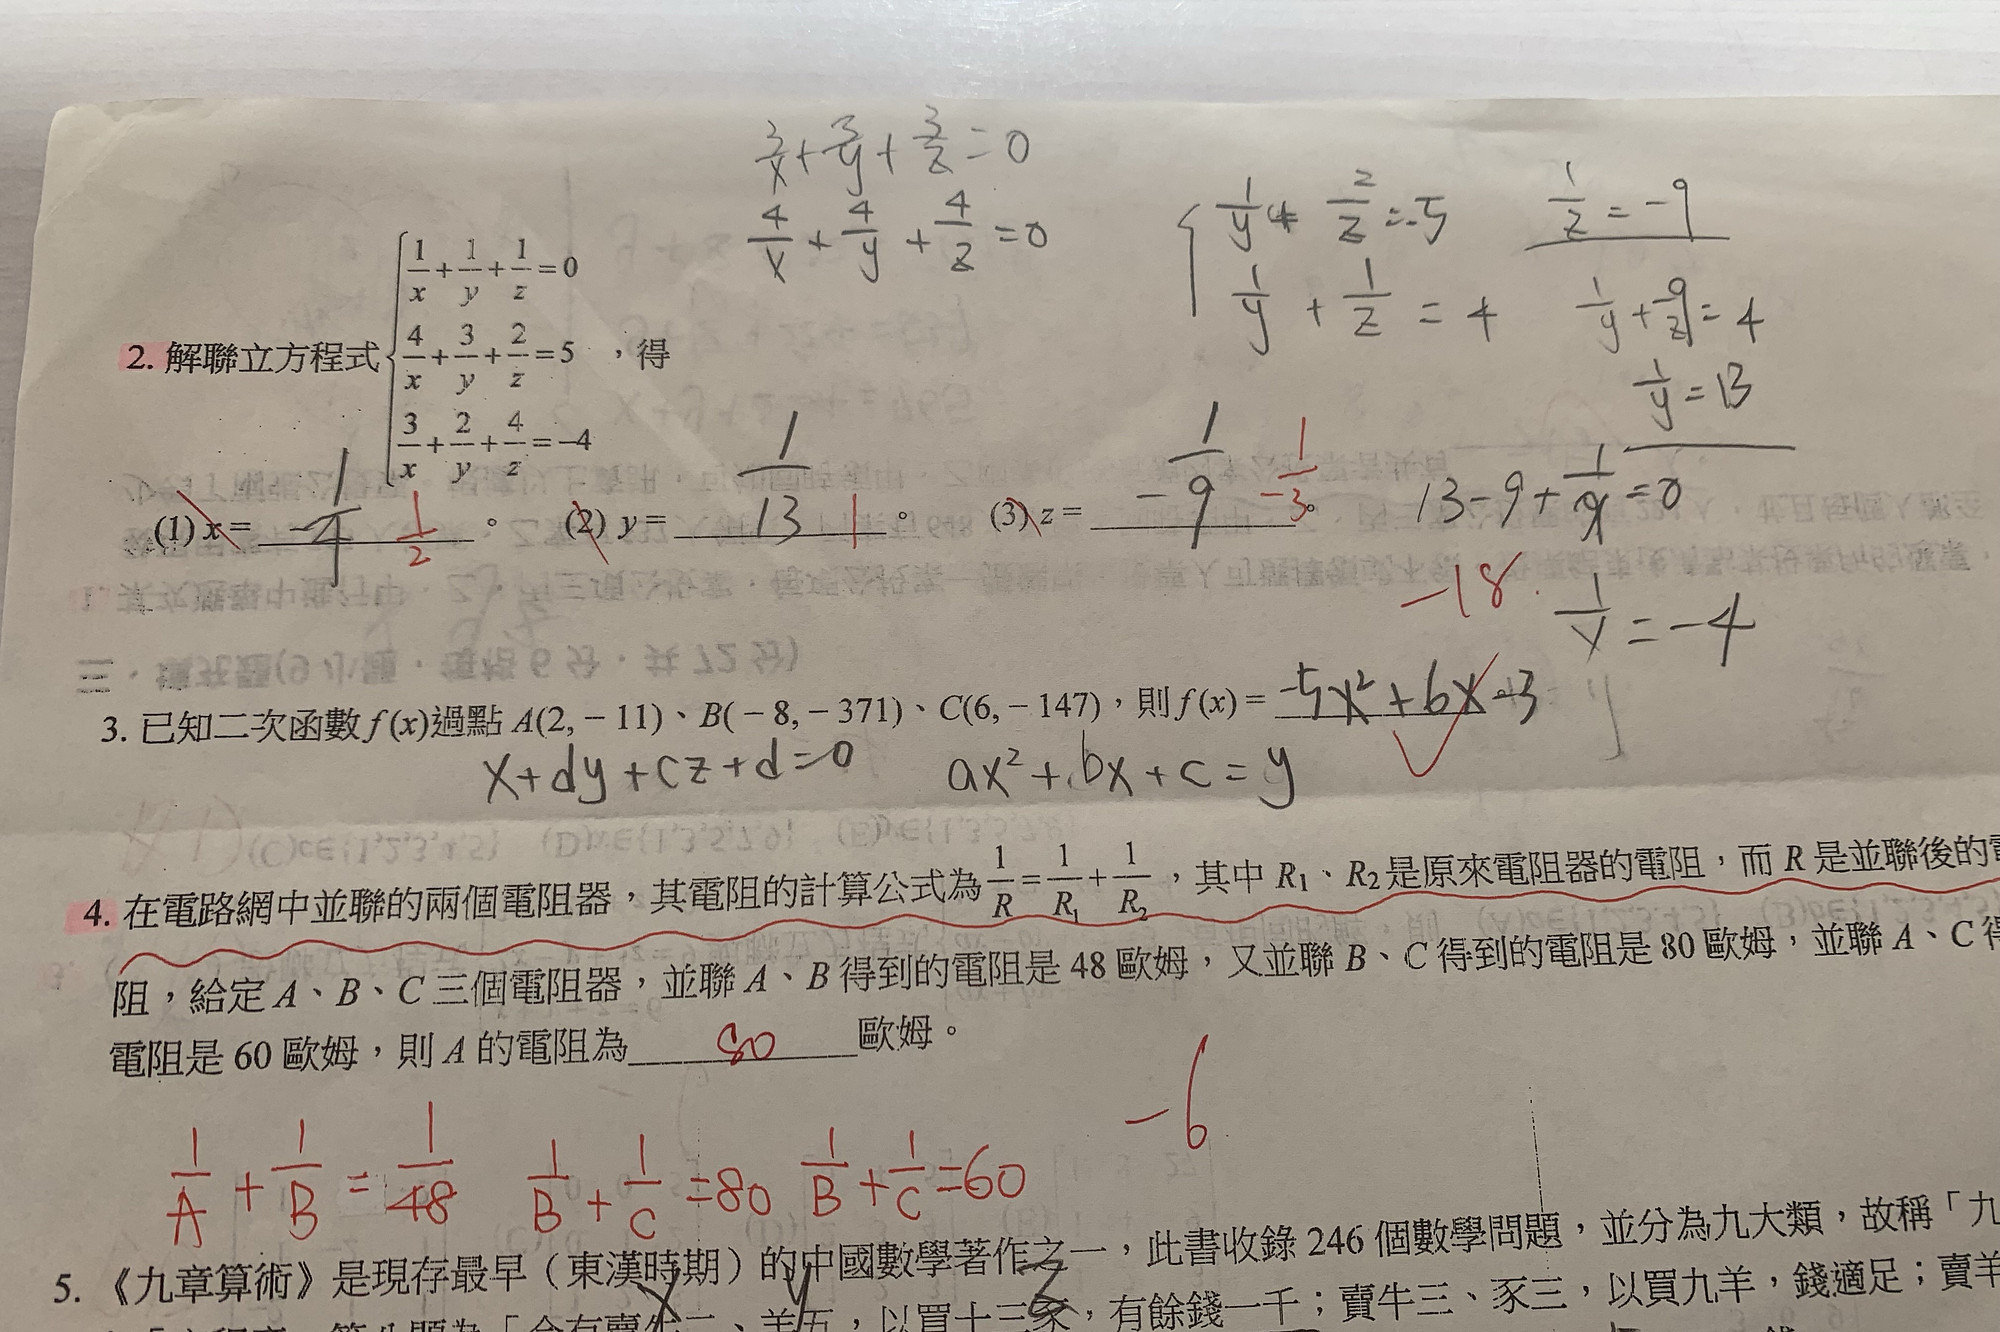 3/x + 3/y + 3/z = 0
4/x + 4/y + 4/z = 0
1/y + 2/z = -5
1/y + 1/z = 4
1/z = -9
1/y + -9 = 4
1/y = 13
13 - 9 + 1/x = 0
1/x = -4
2. 解聯立方程式
1/x + 1/y + 1/z = 0
4/x + 3/y + 2/z = 5 ，得
3/x + 2/y + 4/z = -4
(1) x = 1/-4 1/2 。 (2) y = 1/13 1 。 (3) z = 1/-9 1/-3 。
-18
3. 已知二次函數 f (x)過點 A(2, − 11)、B(− 8, − 371)、C(6, − 147)，則 f (x) = -5x² + 6x - 3
x + dy + cz + d = 0 ax² + bx + c = y
4. 在電路網中並聯的兩個電阻器，其電阻的計算公式為 1/R = 1/R₁ + 1/R₂ ，其中 R₁、R₂是原來電阻器的電阻，而 R 是並聯後的
阻，給定 A、B、C 三個電阻器，並聯 A、B 得到的電阻是 48 歐姆，又並聯 B、C 得到的電阻是 80 歐姆，並聯 A、C
電阻是 60 歐姆，則 A 的電阻為 80 歐姆。
-6
1/A + 1/B = 1/48 1/B + 1/C = 80 1/B + 1/C = 60
5. 《九章算術》是現存最早（東漢時期）的中國數學著作之一，此書收錄 246 個數學問題，並分為九大類，故稱「九
x y z
羊五，以買十三豕，有餘錢一千；賣牛三、豕三，以買九羊，錢適足；賣羊